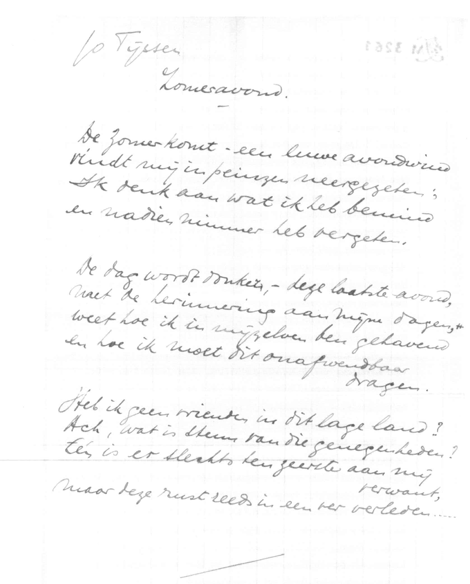 Jo Tijssen
Zomeravond.
De Zomer komt - een luwe avondwind
vindt mij in peinzen neergezeten:
Ik denk aan wat ik heb bemind
en nadien nimmer heb vergeten.
De dag wordt donker, - deze laatste avond,
met de herinnering aan mijne dagen,
weet hoe ik in mijzelven ben gehavend
en hoe ik moet dit onafwendbaar
dragen.
Heb ik geen vrienden in dit lage land?
Ach, wat is van die genegenheden?
Eén is er slechts ten zeerste aan mij
verwant,
maar deze rust reeds in een ver verleden.....